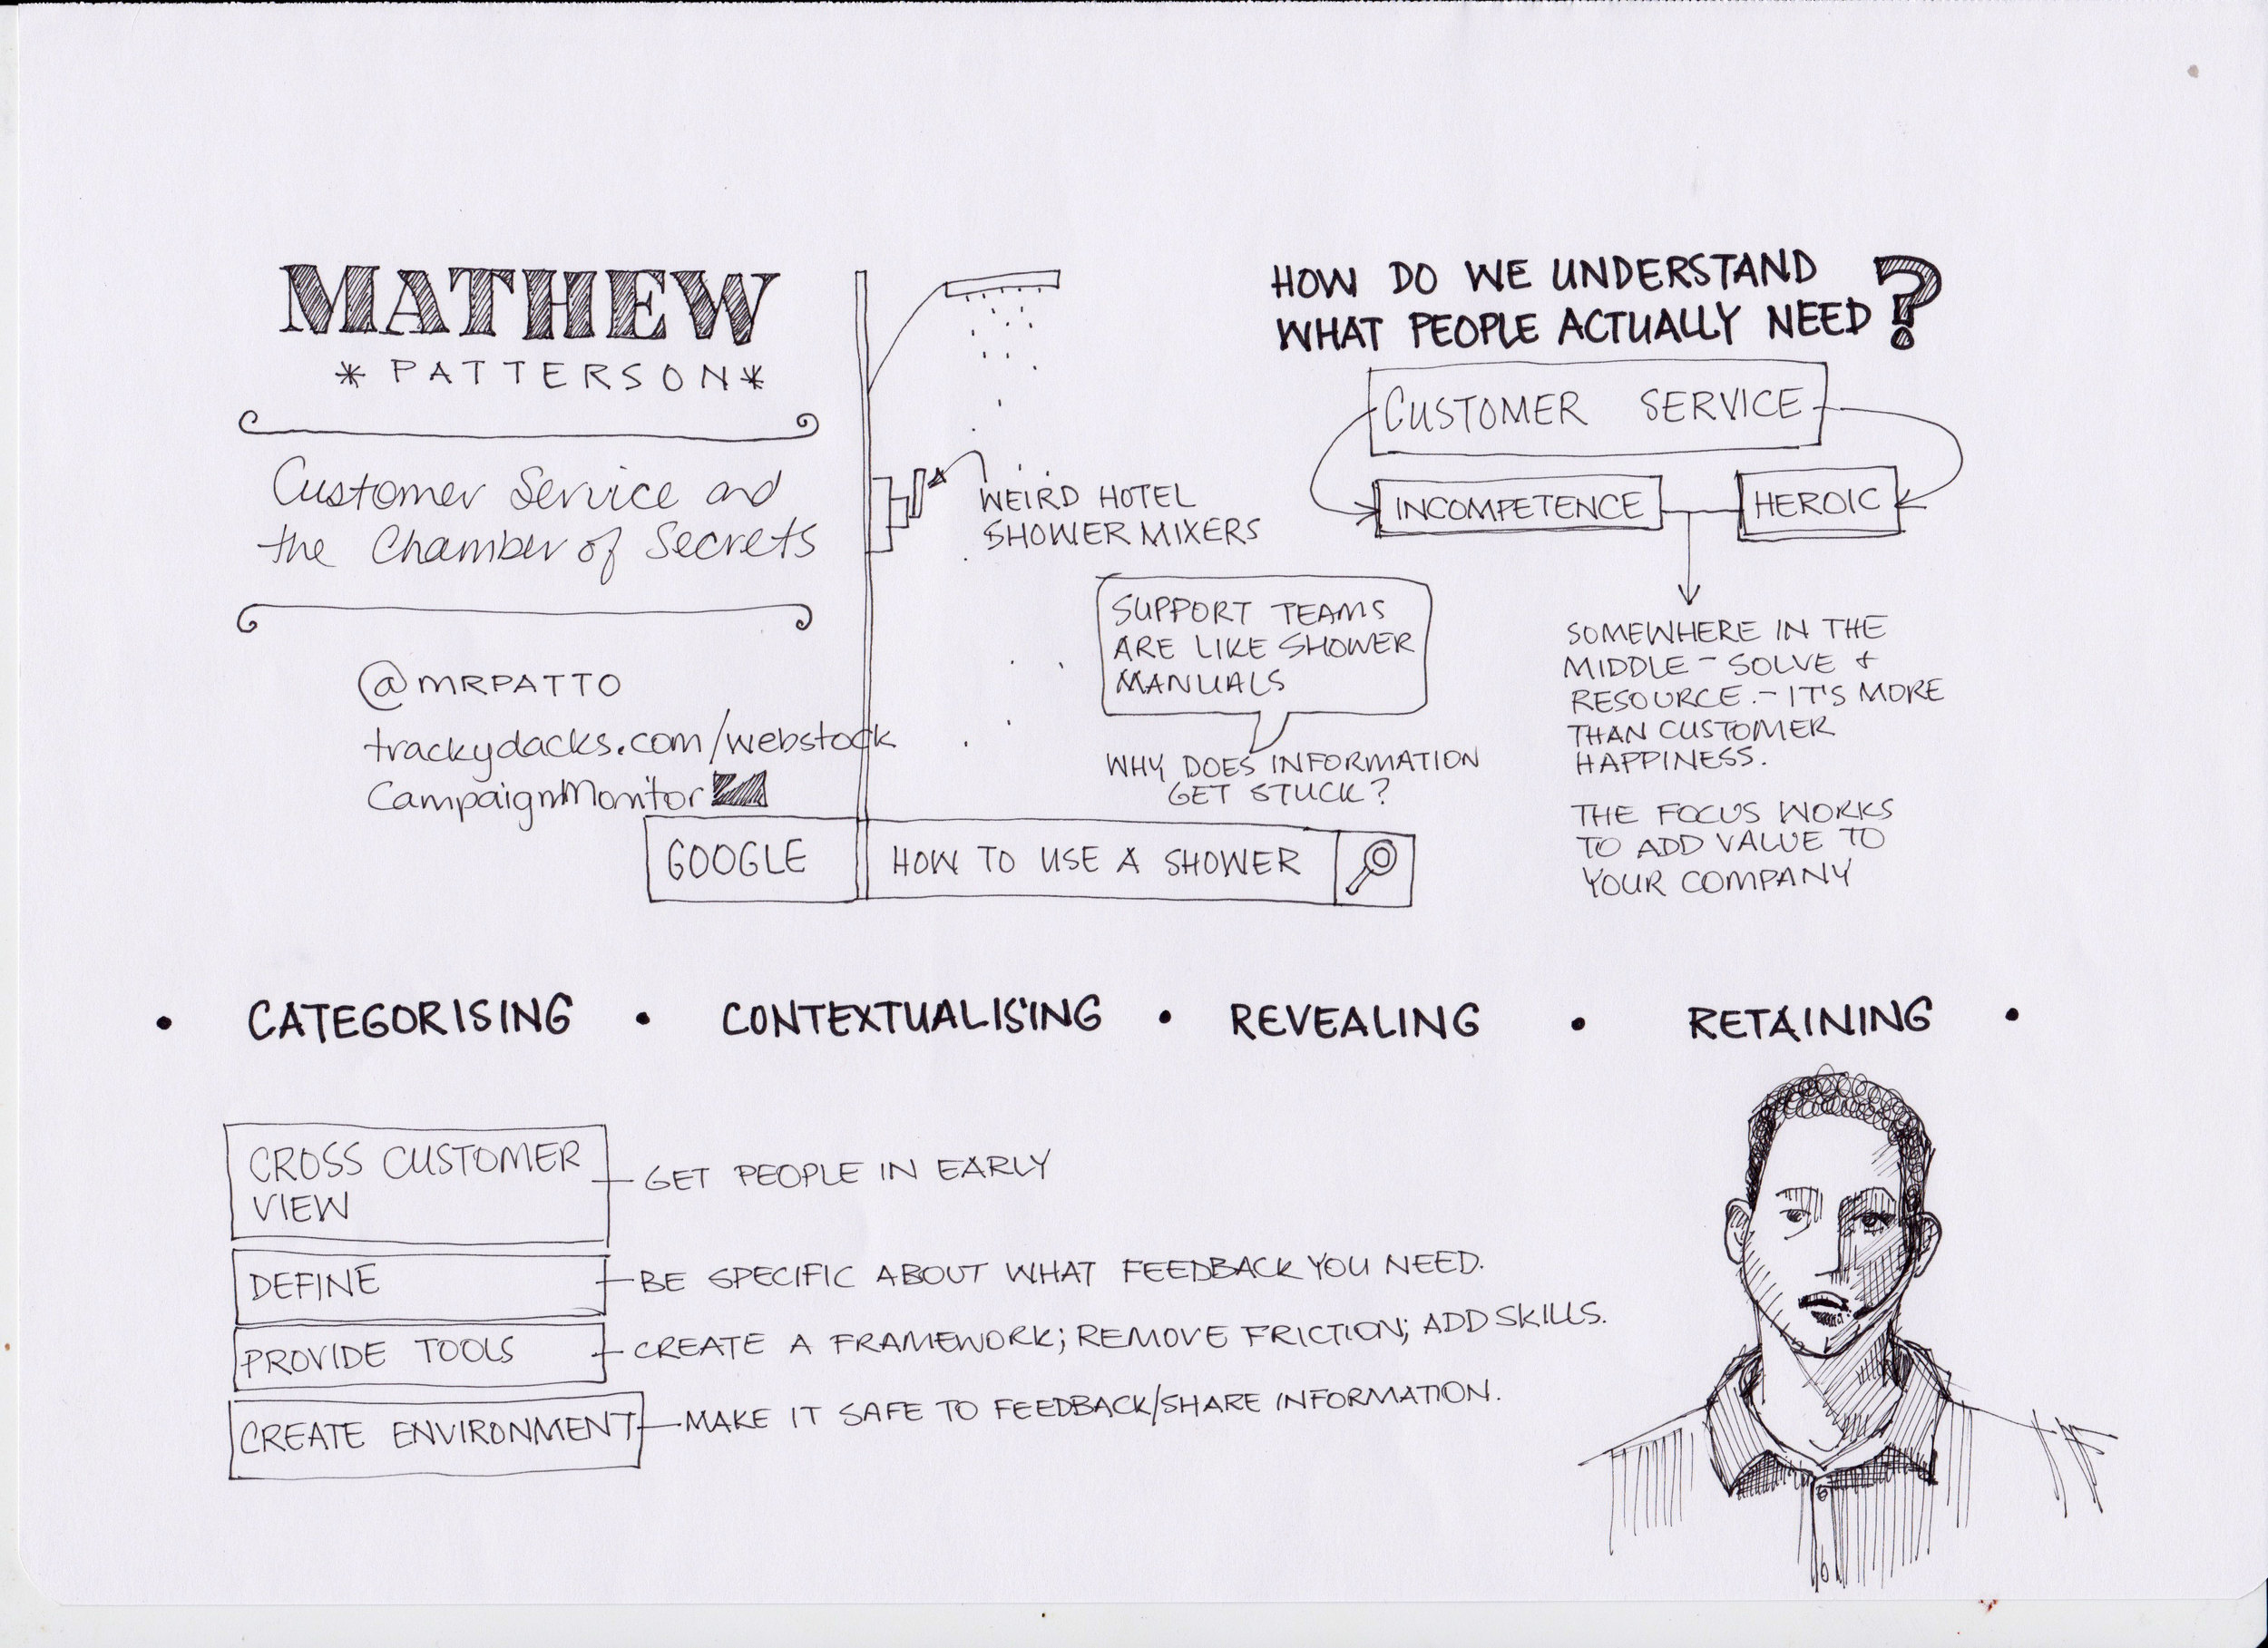 MATHEW
* PATTERSON *
Customer Service and
the Chamber of Secrets
@MRPATTO
trackydacks.com/webstock
CampaignMonitor
WEIRD HOTEL
SHOWER MIXERS
SUPPORT TEAMS
ARE LIKE SHOWER
MANUALS
WHY DOES INFORMATION
GET STUCK?
GOOGLE
HOW TO USE A SHOWER
HOW DO WE UNDERSTAND
WHAT PEOPLE ACTUALLY NEED?
CUSTOMER SERVICE
INCOMPETENCE
HEROIC
SOMEWHERE IN THE
MIDDLE - SOLVE +
RESOURCE. - IT'S MORE
THAN CUSTOMER
HAPPINESS.
THE FOCUS WORKS
TO ADD VALUE TO
YOUR COMPANY
• CATEGORISING • CONTEXTUALISING • REVEALING • RETAINING •
CROSS CUSTOMER
VIEW
GET PEOPLE IN EARLY
DEFINE
BE SPECIFIC ABOUT WHAT FEEDBACK YOU NEED.
PROVIDE TOOLS
CREATE A FRAMEWORK; REMOVE FRICTION; ADD SKILLS.
CREATE ENVIRONMENT
MAKE IT SAFE TO FEEDBACK/SHARE INFORMATION.